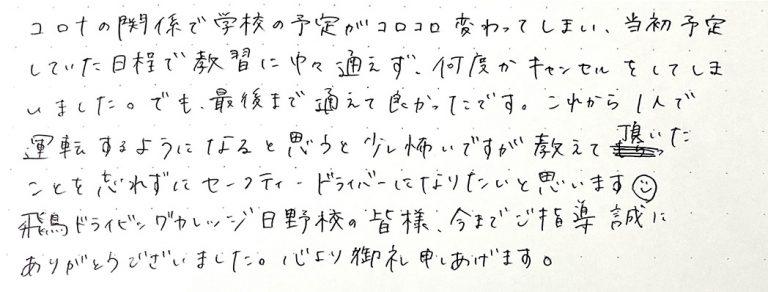 コロナの関係で学校の予定がコロコロ変わってしまい、当初予定
していた日程で教習に中々通えず、何度かキャンセルをしてしま
いました。でも、最後まで通えて良かったです。これから1人で
運転するようになると思うと少し怖いですが教えて頂いた
ことを忘れずにセーフティードライバーになりたいと思います☺
飛鳥ドライビングカレッジ日野校の皆様、今までご指導誠に
ありがとうございました。心より御礼申しあげます。